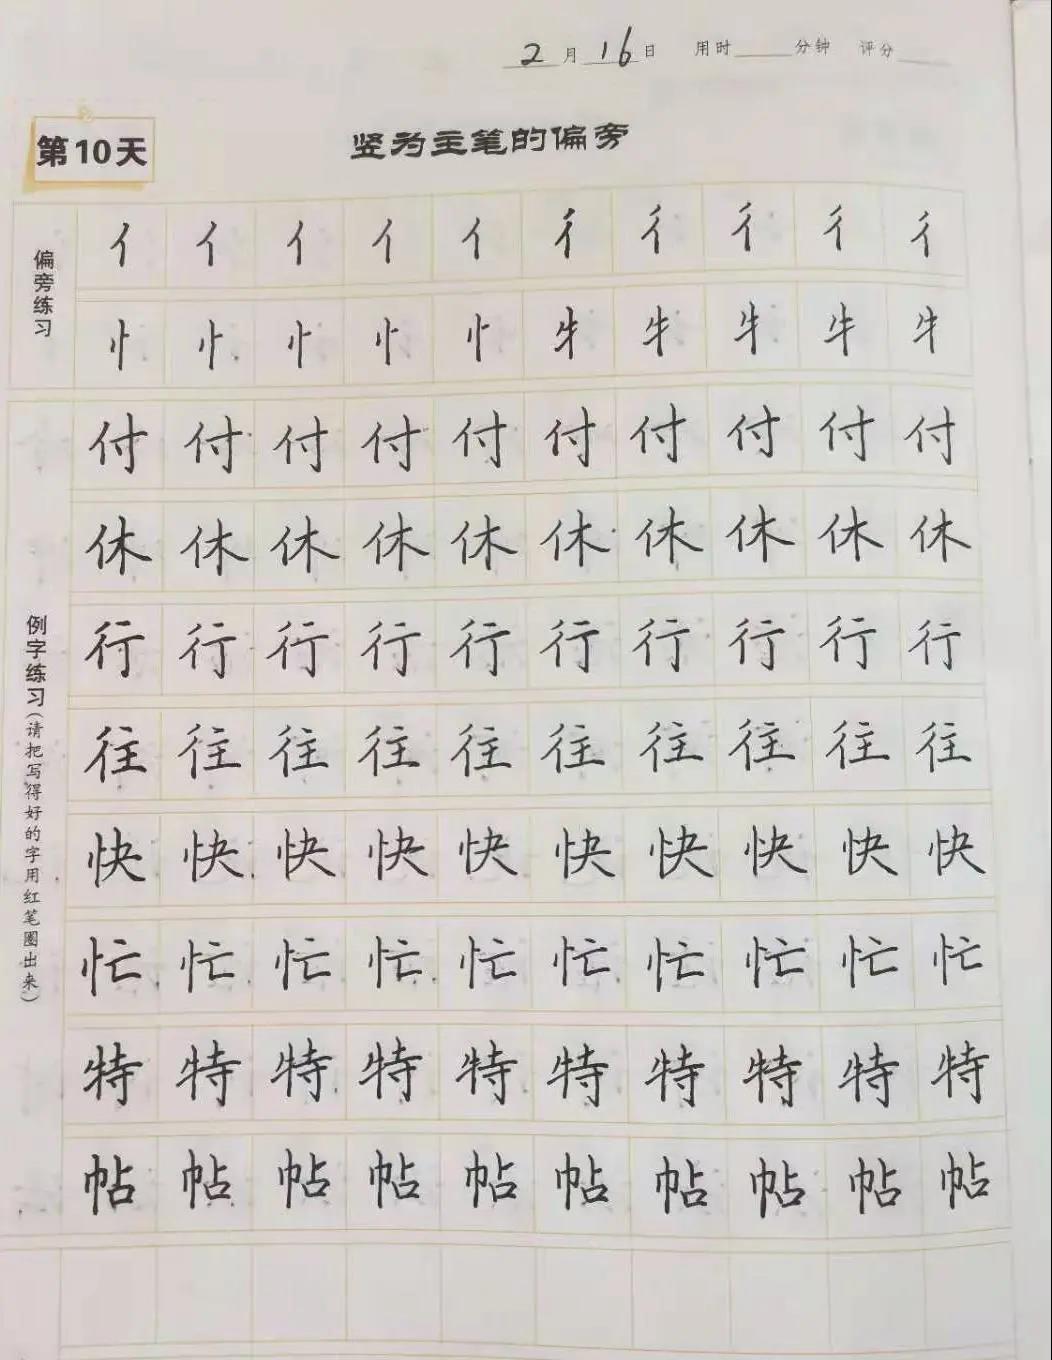 2月16日 用时 分钟 评分
第10天
竖为主笔的偏旁
偏旁练习
亻亻亻亻亻彳彳彳彳彳
忄忄忄忄忄牜牜牜牜牜
例字练习(请把写得好的字用红笔圈出来)
付付付付付付付付付付
休休休休休休休休休休
行行行行行行行行行行
往往往往往往往往往往
快快快快快快快快快快
忙忙忙忙忙忙忙忙忙忙
特特特特特特特特特特
帖帖帖帖帖帖帖帖帖帖